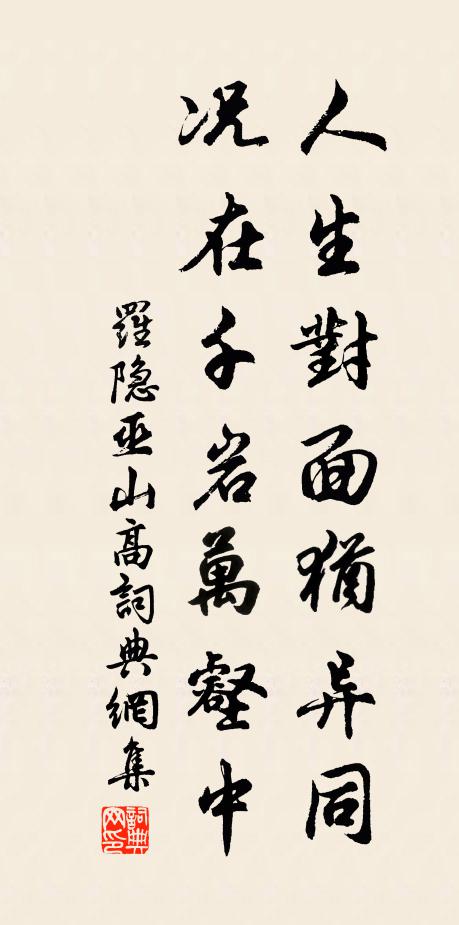 人生對面猶异同
况在千岩萬壑中
羅隐巫山高詞典網集
詞典網印